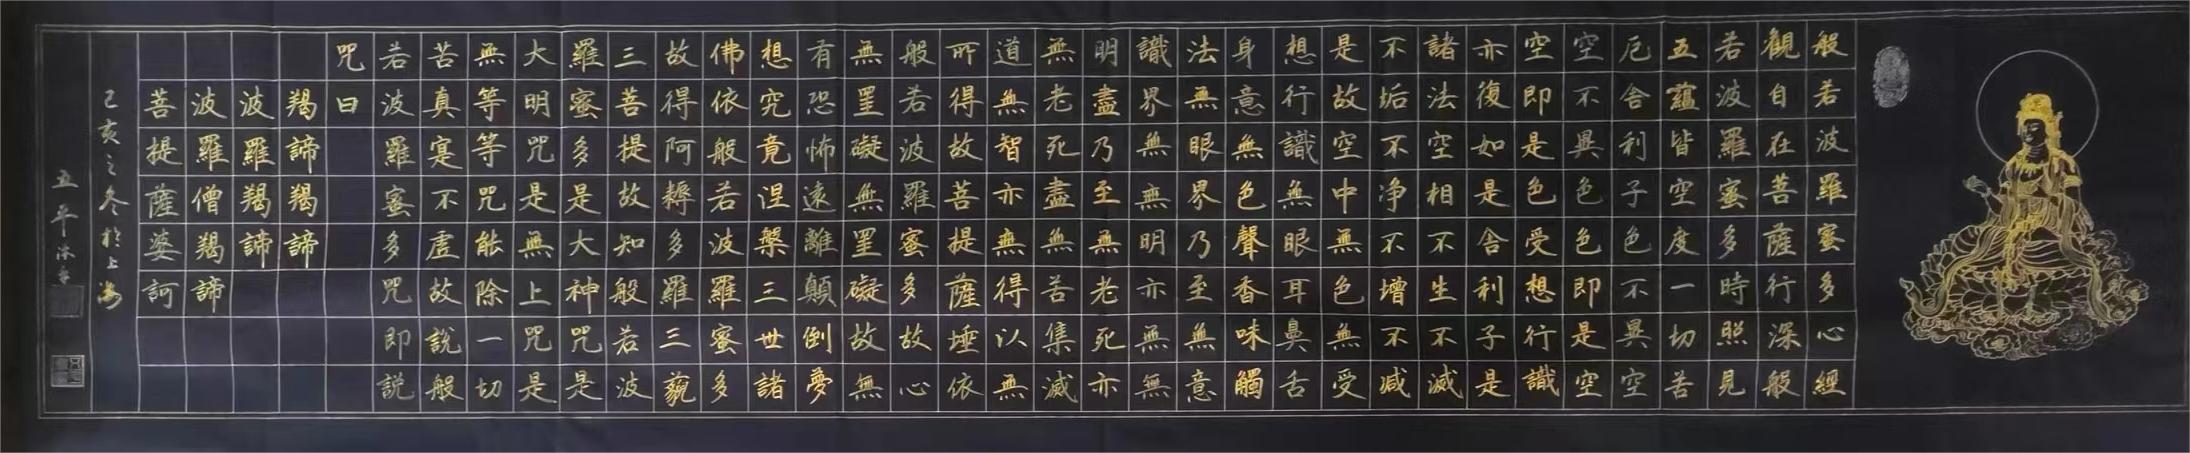 般若波羅蜜多心經
觀自在菩薩行深般
若波羅蜜多時照見
五蘊皆空度一切苦
厄舍利子色不異空
空不異色色即是空
空即是色受想行識
亦復如是舍利子是
諸法空相不生不滅
不垢不净不增不减
是故空中無色無受
想行識無眼耳鼻舌
身意無色聲香味觸
法無眼界乃至無意
識界無無明亦無無
明盡乃至無老死亦
無老死盡無苦集滅
道無智亦無得以無
所得故菩提薩埵依
般若波羅蜜多故心
無罣礙無罣礙故無
有恐怖遠離顛倒夢
想究竟涅槃三世諸
佛依般若波羅蜜多
故得阿耨多羅三藐
三菩提故知般若波
羅蜜多是大神咒是
大明咒是無上咒是
無等等咒能除一切
苦真寔不虛故說般
若波羅蜜多咒即説
咒曰
羯諦羯諦
波羅羯諦
波羅僧羯諦
菩提薩婆訶
己亥之冬於上海
五平沐手